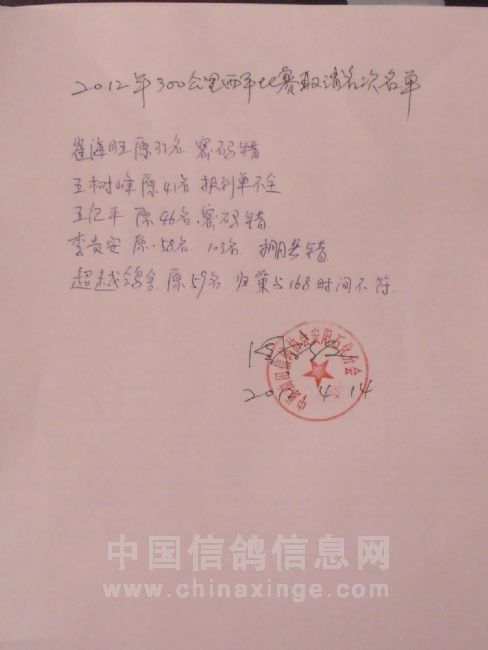 2012年300公里西平比赛取消名次名单
崔海旺 原32名 密码错
王树峰 原41名 报到单不全
王纪平 原46名 密码错
李贵安 原58名 103名 棚号错
超越鸽舍 原59名 归巢与168时间不符
2012.4.14
中国信鸽信息网
www.chinaxinge.com